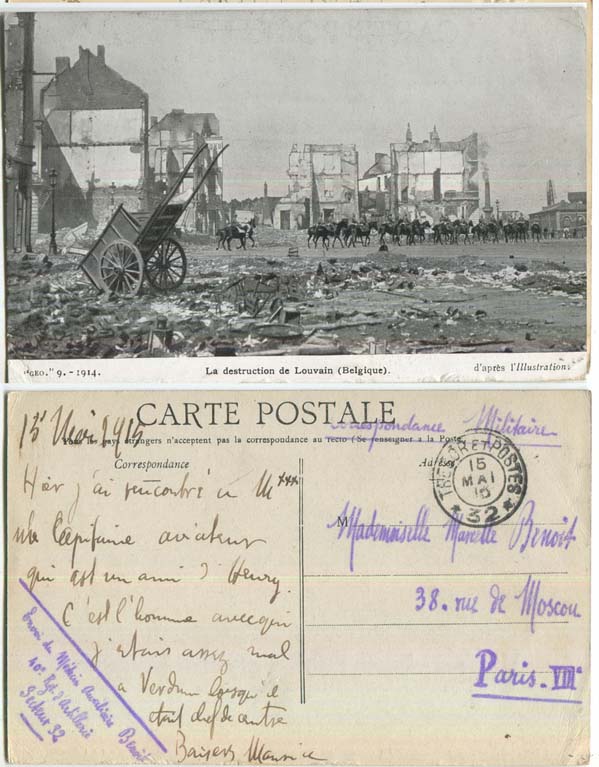 "GEO." 9. - 1914.
La destruction de Louvain (Belgique).
d'après l'Illustration.
15 Mai 1915
CARTE POSTALE
Correspondance Militaire
Tous les pays étrangers n'acceptent pas la correspondance au recto (Se renseigner à la Poste
Correspondance
Adresse
TRESOR ET POSTES
15
MAI
15
* 32 *
Hier j'ai rencontré à M***
un Capitaine aviateur
qui est un ami d'Henry.
C'est l'homme avec qui
j'étais assez mal
à Verdun lorsqu'il
était chef de centre
Baisers Maurice
Envoi du Médecin Auxiliaire Benoit
40e Rgt d'Artillerie
Secteur 32
M
Mademoiselle Marcelle Benoit
38. rue de Moscou
Paris. VIIIe